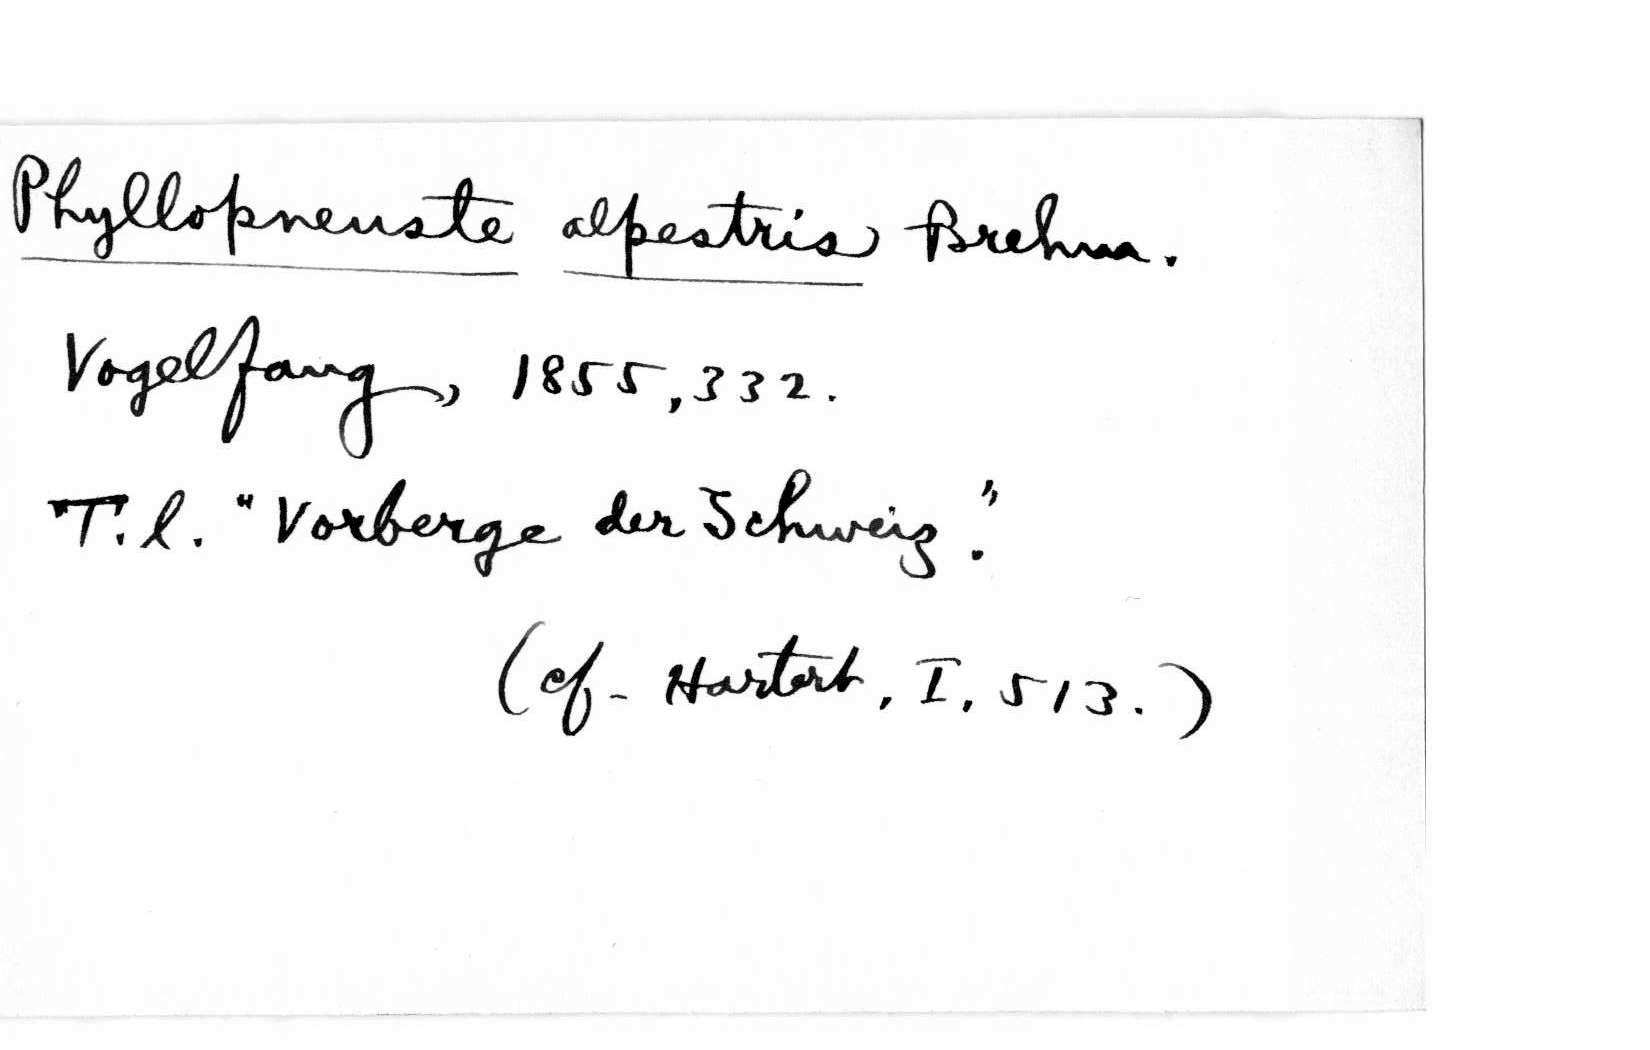 Phyllopneuste alpestris Brehm.
Vogelfang, 1855, 332.
T.l. "Vorberge der Schweiz".
(cf. Hartert, I, 513.)